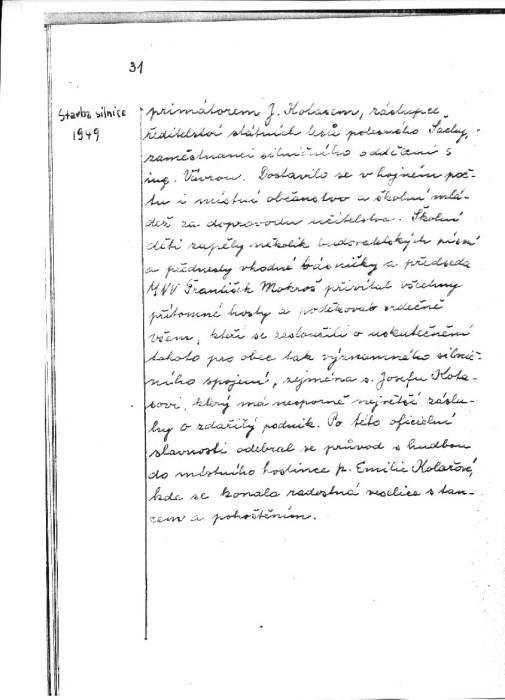 31
Stavba silnice
1949
primátorem J. Kotasem, zástupce
ředitelství státních lesů polesného Šáchy,
zaměstnanci silničního oddělení s
ing. Vávrou. Dostavilo se v hojném poč-
tu i místní občanstvo a školní mlá-
dež za doprovodu učitelstva. Školní
děti zapěly několik budovatelských písní
a přednesly vhodné básničky a předseda
MNV František Mokroš přivítal všechny
přítomné hosty a poděkoval srdečně
všem, kteří se zasloužili o uskutečnění
tohoto pro obec tak významného silnič-
ního spojení, zejména s. Josefu Kota-
sovi, který má nesporně největší záslu-
hy o zdařilý podnik. Po této oficielní
slavnosti odebral se průvod s hudbou
do místního hostince p. Emilie Kolářové,
kde se konala radostná veselice s tan-
cem a pohoštěním.